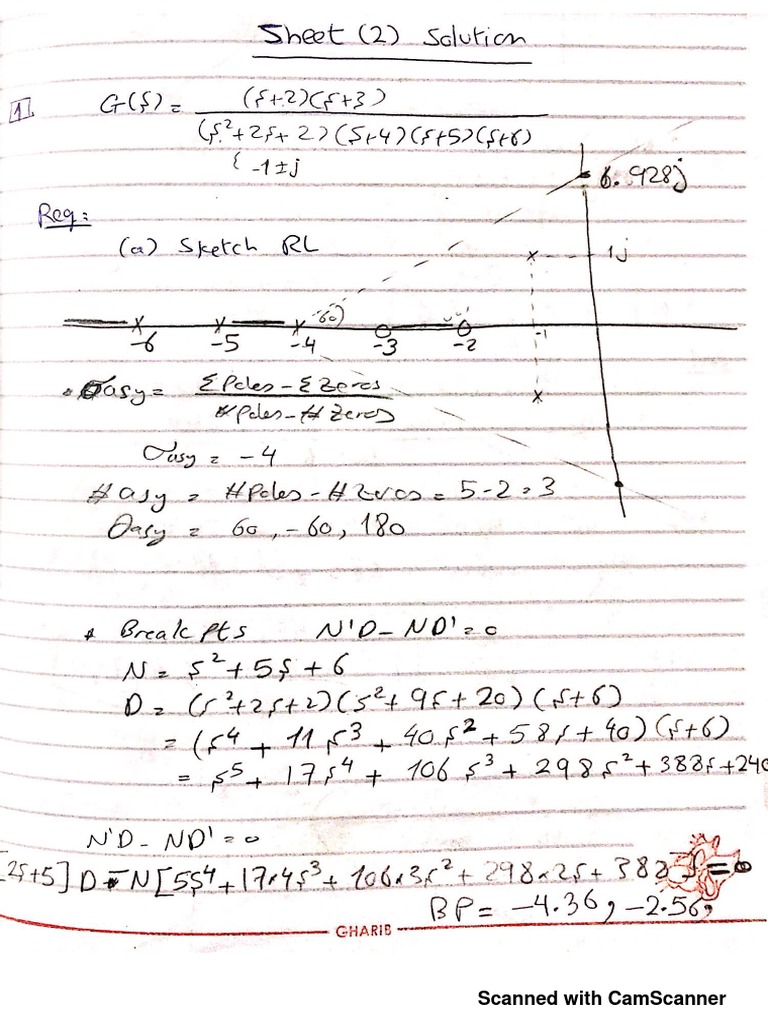 Sheet (2) Solution
1 G(s) = (s+2)(s+3)
(s²+2s+2)(s+4)(s+5)(s+6)
{ -1±j
6.928j
Req:
(a) Sketch RL
1j
60)
-6 -5 -4 -3 -2 -1
• σasy = ΣPoles - ΣZeros
#Poles - # Zeros
σasy = -4
# asy = #Poles - # Zeros = 5-2 = 3
θasy = 60, -60, 180
* Break pts N'D - ND' = 0
N = s² + 5s + 6
D = (s²+2s+2)(s²+9s+20)(s+6)
= (s⁴ + 11s³ + 40s² + 58s + 40)(s+6)
= s⁵ + 17s⁴ + 106s³ + 298s² + 388s + 240
N'D - ND' = 0
[2s+5] D - N[5s⁴ + 17×4s³ + 106×3s² + 298×2s + 388] = 0
BP = -4.36, -2.56,
GHARIB
Scanned with CamScanner